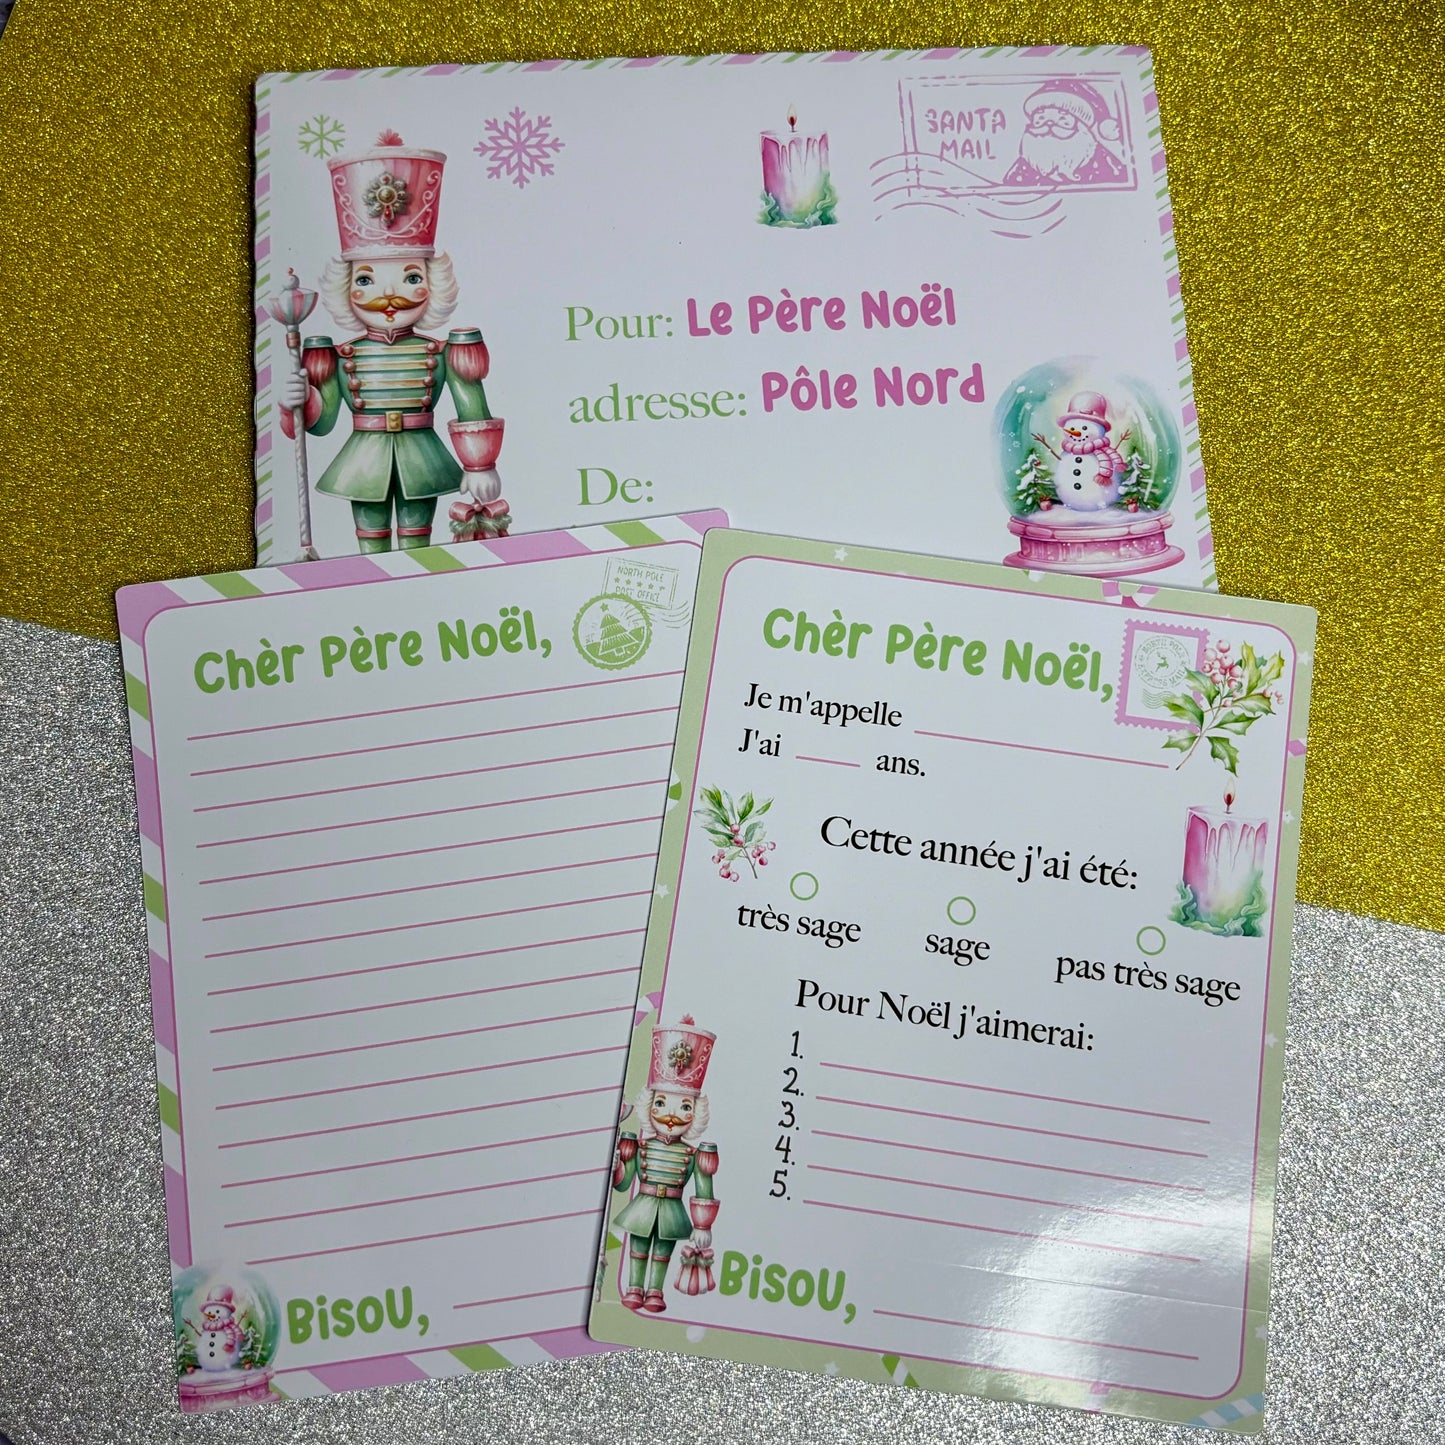 SANTA
MAIL
Pour: Le Père Noël
adresse: Pôle Nord
De:
NORTH POLE
POST OFFICE
Chèr Père Noël,
Bisou,
Chèr Père Noël,
NORTH POLE
EXPRESS MAIL
Je m'appelle
J'ai ans.
Cette année j'ai été:
très sage sage pas très sage
Pour Noël j'aimerai:
1.
2.
3.
4.
5.
Bisou,